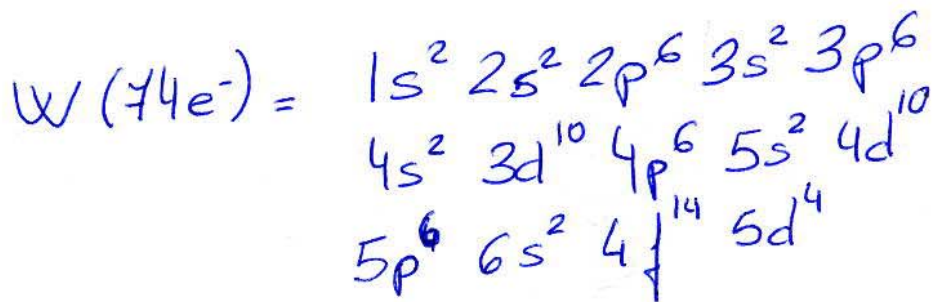 W (74e⁻) = 1s² 2s² 2p⁶ 3s² 3p⁶
4s² 3d¹⁰ 4p⁶ 5s² 4d¹⁰
5p⁶ 6s² 4f¹⁴ 5d⁴